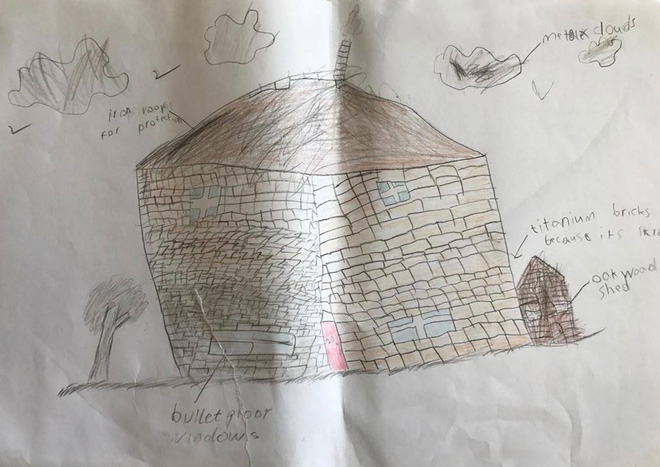 metal clouds
iron roof
for protection
titanium bricks
because its
oak wood
shed
bulletproof
windows